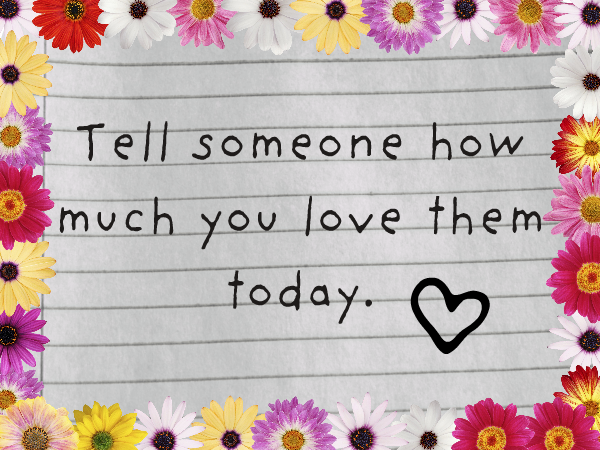 Tell someone how
much you love them
today.